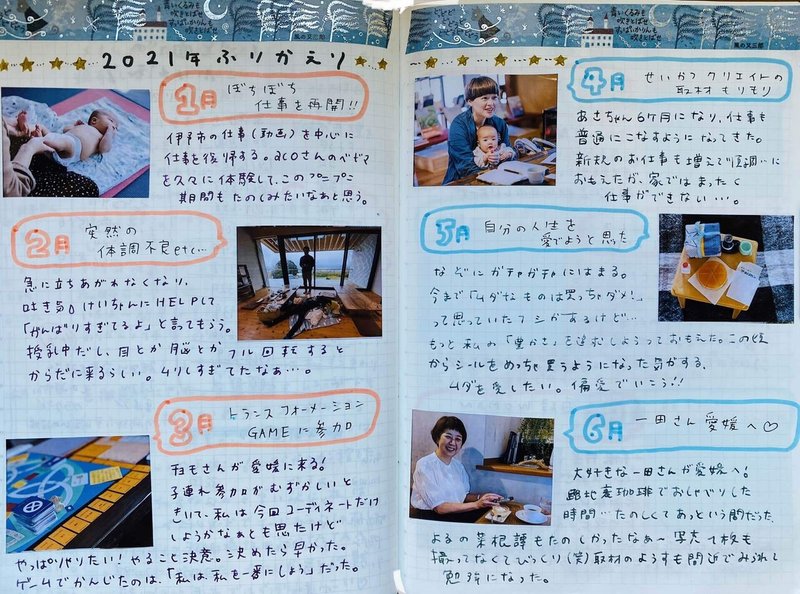 青いくるみも
吹きとばせ
すっぱいかりんも
吹きとばせ
風の又三郎
2021年ふりかえり
1月
ぼちぼち
仕事を再開!!
伊予市の仕事(動画)を中心に
仕事を復帰する。acoさんのベビマ
を久々に体験して、このプニプニ
期間もたのしみたいなぁと思う。
2月
突然の
体調不良etc…
急に立ちあがれなくなり、
吐き気。けいちゃんにHELPして
「がんばりすぎてるよ」と言ってもらう。
授乳中だし、目とか脳とかフル回転すると
からだに来るらしい。ムリしすぎてたなぁ…。
3月
トランスフォーメーション
GAMEに参加
和もさんが愛媛に来る!
子連れ参加がむずかしいと
きいて、私は今回コーディネートだけ
しようかなぁとも思たけど
やっぱりやりたい!やること決意。決めたら早かった。
ゲームでかんじたのは、「私は、私を一番にしよう」だった。
青いくるみも
吹きとばせ
すっぱいかりんも
吹きとばせ
風の又三郎
4月
せいかつクリエイトの
取材もりもり
あさちゃん6ヶ月になり、仕事も
普通にこなすようになってきた。
新規のお仕事も増えて順調に
おもえたが、家ではまったく
仕事ができない…。
5月
自分の人生を
愛でようと思った
などにガチャガチャにはまる。
今まで「ムダなものは買っちゃダメ!」
って思っていたフシがあるけど…
もっと私の「豊かさ」を追求しようっておもえた。この頃
からシールをめっちゃ買うようになった気がする。
ムダを愛したい。偏愛でいこう!!
6月
一田さん愛媛へ♡
大好きな一田さんが愛媛へ!
路地裏珈琲でおしゃべりした
時間…たのしくてあっという間だった
よるの菜根譚もたのしかったなぁ〜写真1枚も
撮ってなくてびっくり(笑)取材のようすも間近でみられて
勉強になった。